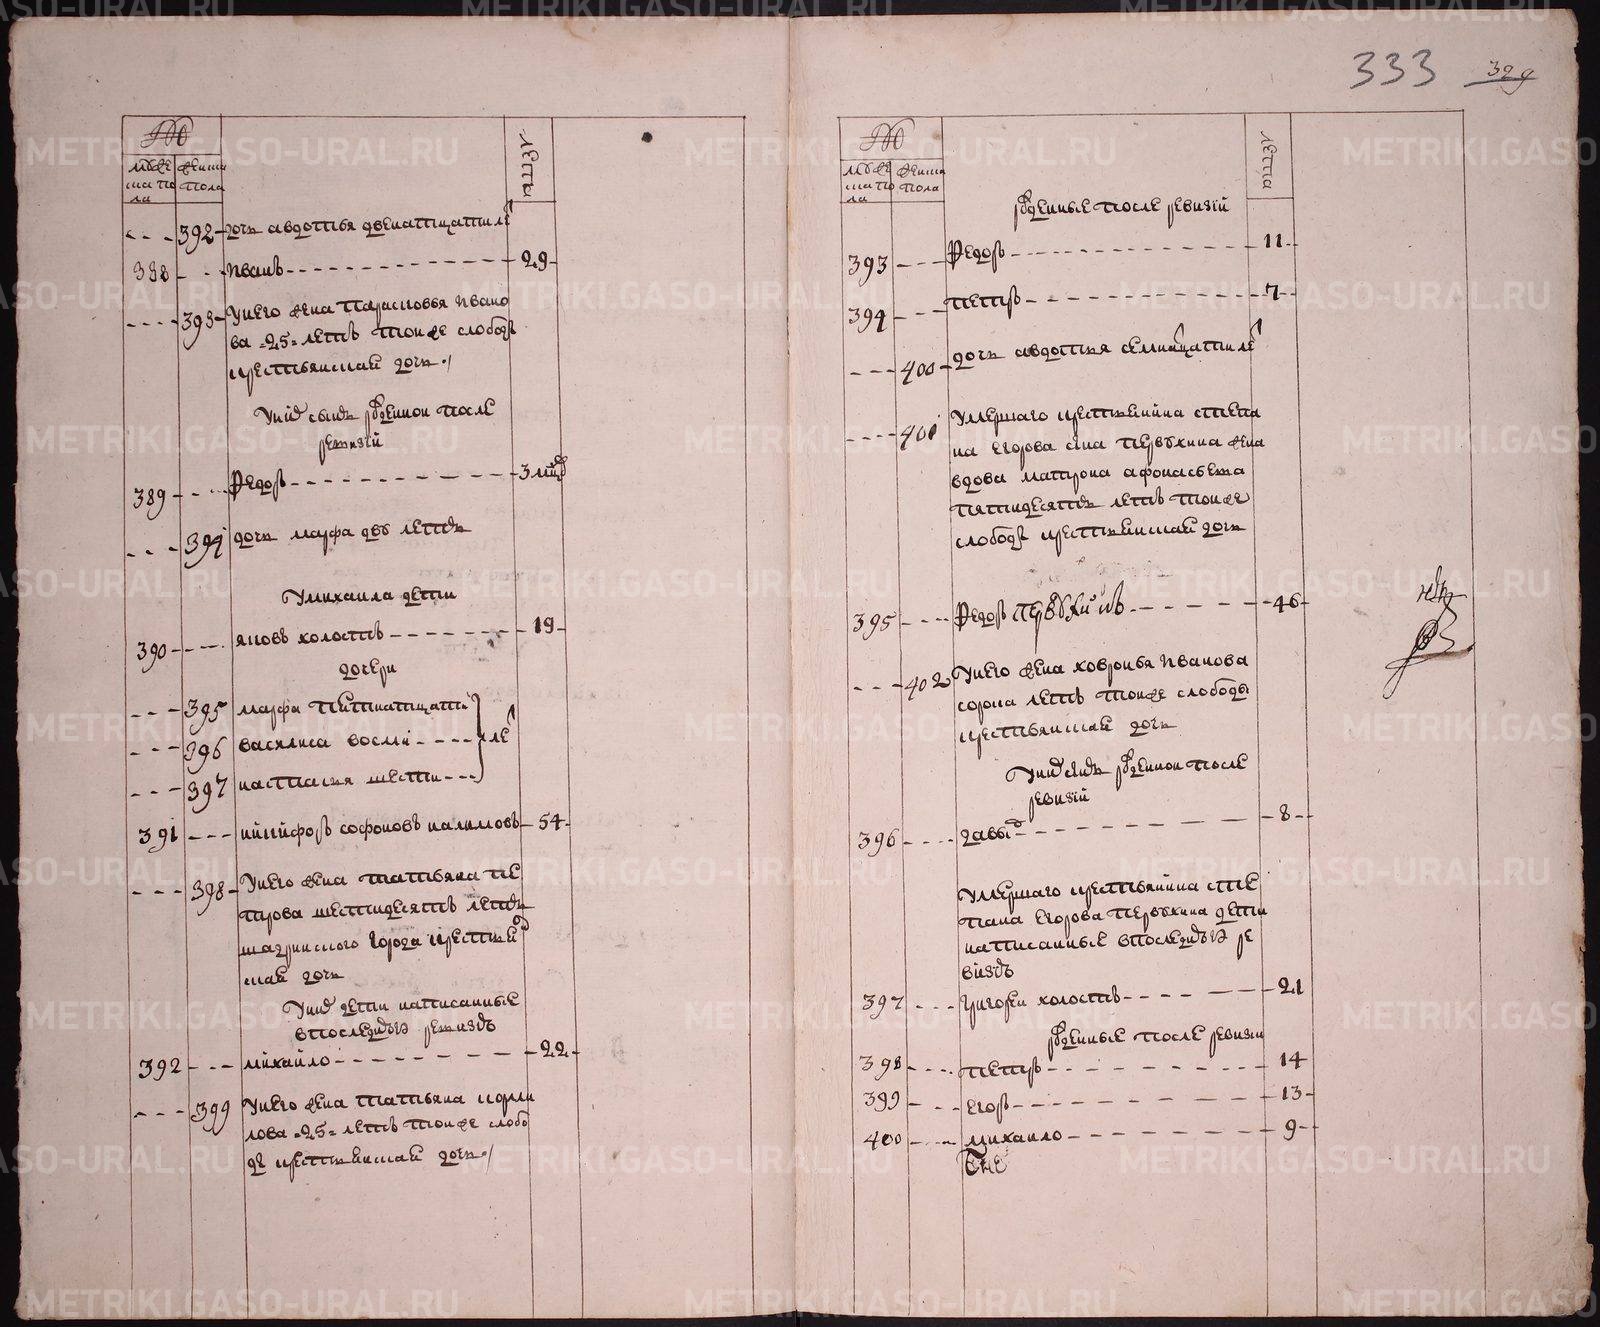 333 329
№
мужеска пола
женска пола
лета
392 дочь авдотья двенатцати ле
388 иванъ 29
393 у него жена парасковья ивано
ва 25 летъ тои же слободы
крестьянская дочь
у них сынъ рожденнои после
ревизии
389 Федоръ 3 мцъ
394 дочь марфа дву летъ
у михаила дети
390 яковъ холостъ 19
дочери
395 марфа пятнатцати
396 василиса восми ле
397 насталья шести
391 никифоръ софоновъ налимовъ 54
398 у него жена татьяна пе
трова шестидесятъ летъ
шадринского города крестьян
ская дочь
у них дети написанные
в последнеи ревизъ
392 михайло 22
399 у него жена татьяна корми
лова 25 летъ тои же слобо
де крестьянская дочь
№
мужеска пола
женска пола
лета
рожденные после ревизии
393 Федоръ 11
394 петръ 7
400 дочь авдотья семнатцати ле
401 умершаго крестьянина степа
на егорова сна первухина жена
вдова матрона афонасьева
пятидесятъ летъ тои же
слободы крестьянская дочь
395 Федоръ первухинъ 46
402 у него жена ховронья иванова
сорока летъ тои же слободы
крестьянская дочь
у них сынъ рожденнои после
ревизии
396 давыд 8
умершаго крестьянина сте
пана егорова первухина дети
написанные в последнеи ре
визъ
397 григореи холостъ 21
рожденные после ревизии
398 петръ 14
399 егоръ 13
400 михаило 9
METRIKI.GASO-URAL.RU